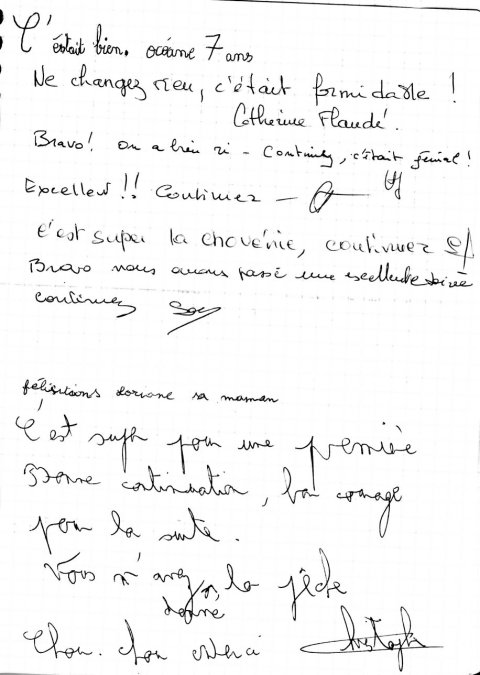 C'était bien. océane 7 ans
Ne changez rien, c'était formidable !
Catherine Flaudé.
Bravo! On a bien ri - Continuez, c'était génial !
Excellent !! Continuez -
C'est super la chovénie, continuez
Bravo nous avons passé une excellente soirée
continuez
félicitations doriane sa maman
C'est super pour une première
Bonne continuation, bon courage
pour la suite.
Vous n'avez la pêche
donné
Chou. chou merci Christophe